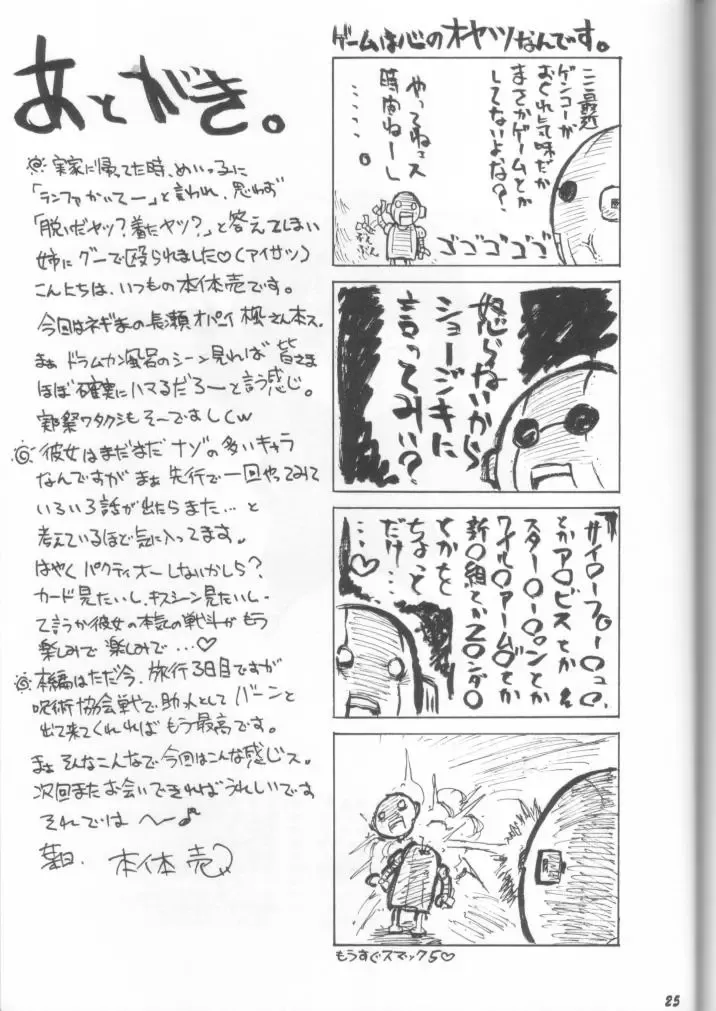 あとがき。
実家に帰ってた時、めいっ子に
「ランファかいてー」と言われ、思わず
「脱いだヤツ？着たヤツ？」と答えてしまい
姉にグーで殴られました♡(アイサツ)
こんにちは、いつもの本体売です。
今回はネギまの長瀬オパーイ楓さん本ス。
まぁドラムカン風呂のシーン見れば皆さま
ほぼ確実にハマるだろーと言う感じ。
実際ワタクシもそーですしくw
彼女はまだまだナゾの多いキャラ
なんですがまぁ先行で一回やってみて
いろいろ話が出たらまた…と
考えているほど気に入ってます。
はやくパクティオーしないかしら？
カード見たいし、キスシーン見たいし、
て言うか彼女の本気の戦斗がもう
楽しみで楽しみで…♡
本編はただ今、旅行3日目ですが
呪術協会戦で助っ人としてバーンと
出て来てくれればもう最高です。
まぁそんなこんなで今回はこんな感じス。
次回またお会いできればうれしいです
それでは〜♪
本体売
ゲームは心のオヤツなんです。
ここ最近
ゲンコーが
おくれ気味だか
まさかゲームとか
してないよな？
やってねっス
時間ねーし
……。
ゴゴゴゴゴ
怒らないから
ショージキに
言ってみい？
サイ○ーフ○ー○ュ○、
とかア○ビスとか
スター○ー○ンとか
ワイル○アーム○とか
新○組とかZ○ンダ○
とかをと
ちょっと
だけ…
…♡
もうすぐスマック5♡
25